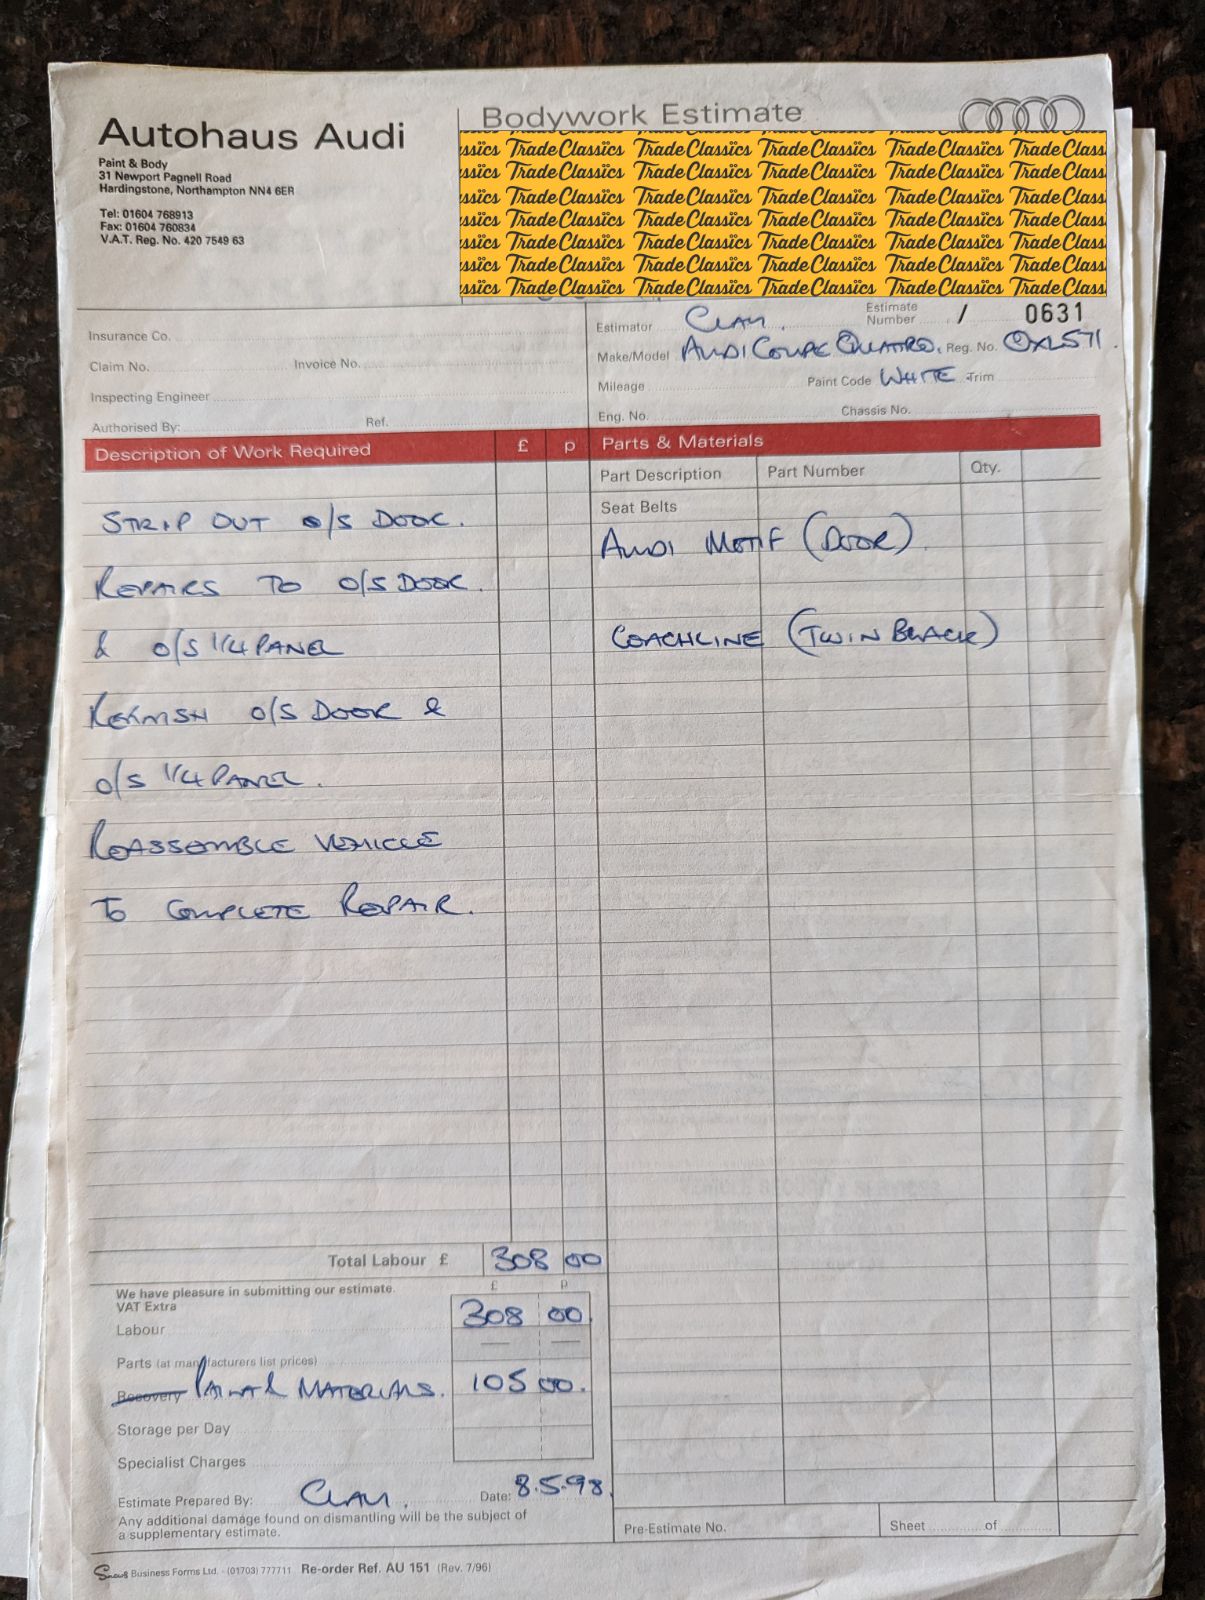 Autohaus Audi
Paint & Body
31 Newport Pagnell Road
Hardingstone, Northampton NN4 6ER
Tel: 01604 768913
Fax: 01604 760834
V.A.T. Reg. No. 420 7549 63
Bodywork Estimate
ssics TradeClassics TradeClassics TradeClassics TradeClassics TradeClass
ssics TradeClassics TradeClassics TradeClassics TradeClassics TradeClass
ssics TradeClassics TradeClassics TradeClassics TradeClassics TradeClass
ssics TradeClassics TradeClassics TradeClassics TradeClassics TradeClass
ssics TradeClassics TradeClassics TradeClassics TradeClassics TradeClass
ssics TradeClassics TradeClassics TradeClassics TradeClassics TradeClass
ssics TradeClassics TradeClassics TradeClassics TradeClassics TradeClass
Insurance Co.
Claim No. Invoice No.
Inspecting Engineer
Authorised By: Ref.
Estimator Estimate Number / 0631
Make/Model AUDI COUPE QUATTRO. Reg. No.
Mileage Paint Code WHITE Trim
Eng. No. Chassis No.
Description of Work Required £ p
STRIP OUT O/S DOOR.
REPAIRS TO O/S DOOR.
& O/S 1/4 PANEL
REFINISH O/S DOOR &
O/S 1/4 PANEL.
REASSEMBLE VEHICLE
TO COMPLETE REPAIR.
Parts & Materials
Part Description Part Number Qty.
Seat Belts
AUDI MOTIF (DOOR).
COACHLINE (TWIN BLACK)
Total Labour £ 308 00
We have pleasure in submitting our estimate.
VAT Extra
£ p
Labour 308 00.
Parts (at manufacturers list prices) — —
Recovery PAINT & MATERIALS. 105 00.
Storage per Day
Specialist Charges
Estimate Prepared By: Date: 8.5.98.
Any additional damage found on dismantling will be the subject of
a supplementary estimate.
Pre-Estimate No. Sheet of
Snows Business Forms Ltd. - (01703) 777711 Re-order Ref. AU 151 (Rev. 7/96)